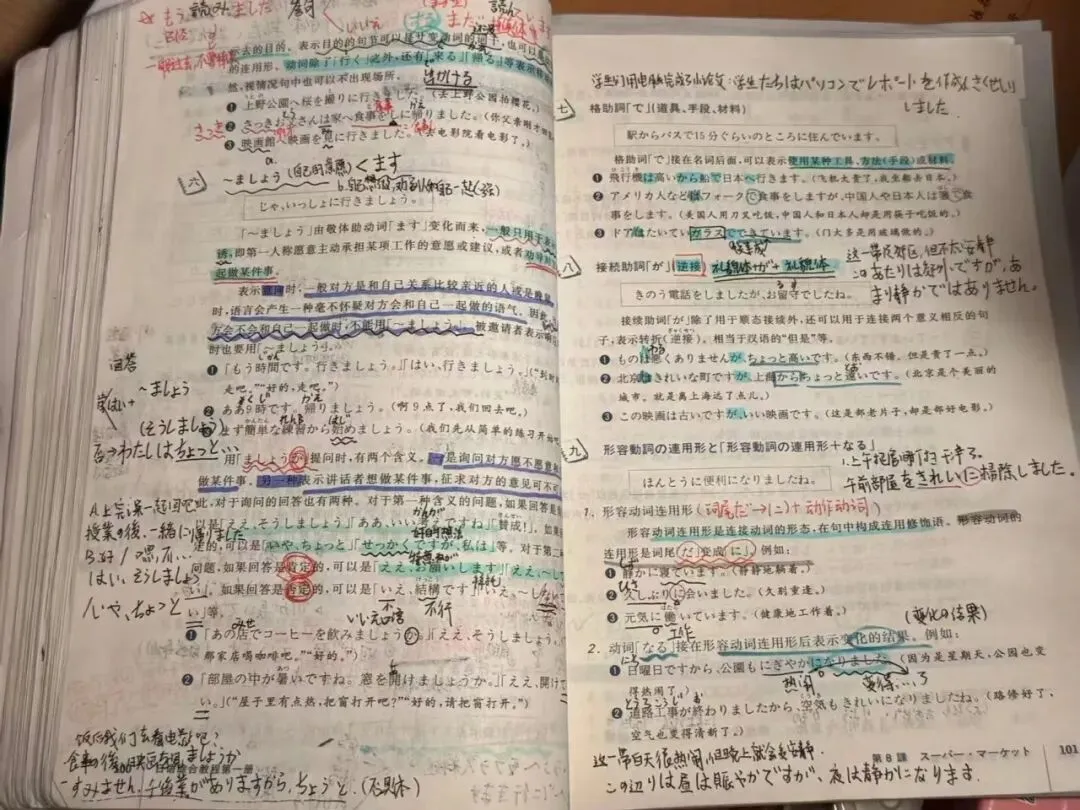 もう読みました
まだ 読んで
示去的目的。表示目的的句节可以是サ变动词的词干,也可以
的连用形。动词除了「行く」之外,还有「来る」「帰る」等表示
然,视情况句中也可以不出现场所。
❶ 上野公園へ桜を撮りに行きました。(去上野公园拍樱花。)
❷ さっきお父さんは家へ食事をしに帰りました。(你父亲刚才
❸ 映画館へ映画を見に行きました。(去电影院看电影了。)
六
~ましょう(自己的意愿)
くます
じゃ、いっしょに行きましょう。
「~ましょう」由敬体助动词「ます」变化而来,一般只用于
诱,即第一人称愿意主动承担某项工作的意愿或建议,或者劝导
起做某件事。
表示意向时,一般对方是和自己关系比较亲近的人或是晚辈
时,语言会产生一种毫不怀疑对方会和自己一起做的语气。因此
方会不会和自己一起做时,不能用「~ましょう」。被邀请者表示
时也要用「~ましょう」。
❶ 「もう時間です。行きましょう。」「はい、行きましょう。」("到时
走吧。""好的,走吧。")
❷ ああ9時です。帰りましょう。(啊9点了,我们回去吧。)
❸ まず簡単な練習から始めましょう。(我们先从简单的练习开始吧
回答
はい+~ましょう
(そうしましょう)
わたしはちょっと…
用「ましょうか」提问时,有两个含义。一是询问对方愿不愿意和
做某件事。另一种表示讲话者想做某件事,征求对方的意见可不可
此,对于询问的回答也有两种。对于第一种含义的问题,如果回答是
以是「ええ、そうしましょう」「ああ、いい考えですね」「賛成!」。如果
定的,可以是「いや、ちょっと」「せっかくですが、私は」等。对于第二
问题,如果回答是肯定的,可以是「ええ、お願いします」「ええ、~し
」。如果回答是否定的,可以是「いえ、結構です」「いえ、~しな
い」等。
授業の後、一緒に帰りましょ
はい、そうしましょ
いや、ちょっと
不行
❶ 「あの店でコーヒーを飲みましょうか。」「ええ、そうしましょう。」
那家店喝咖啡吧。""好的。")
❷ 「部屋の中が暑いですね。窓を開けましょうか。」「ええ、開けて
い。」("屋子里有点热,把窗打开吧?""好的,请把窗打开。")
饭后我们去看电影吧?
食事の後、映画を見ましょうか
100 日语综合教程第一册
すみません、宿題がありますから、ちょっと.(不具体)
学生们用电脑完成了小论文:学生たちはパソコンでレポートを作成さくせい
しました
七
格助詞「で」(道具、手段、材料)
駅からバスで15分ぐらいのところに住んでいます。
格助词「で」接在名词后面,可以表示使用某种工具、方法(手段)或材料。
❶ 飛行機は高いから船で日本へ行きます。(飞机太贵了,我坐船去日本。)
❷ アメリカ人などはフォークで食事をしますが、中国人や日本人は箸で食
事をします。(美国人用刀叉吃饭,中国人和日本人却是用筷子吃饭的。)
❸ ドアはたいていガラスでできています。(门大多是用玻璃做的。)
八
接続助詞「が」(逆接)
礼貌体+が+礼貌体
这一带很好,但不太安静
このあたりは好いですが、あ
まり静かではありません。
きのう電話をしましたが、お留守でしたね。
接续助词「が」除了用于顺态接续外,还可以用于连接两个意义相反的句
子,表示转折(逆接)。相当于汉语的"但是"等。
❶ ものは悪くありませんが、ちょっと高いです。(东西不错。但是贵了一点。)
❷ 北京はきれいな町ですが、上海からちょっと遠いです。(北京是个美丽的
城市。就是离上海远了点儿。)
❸ この映画は古いですが、いい映画です。(这是部老片子,却是部好电影。)
九
形容動詞の連用形と「形容動詞の連用形+なる」
午前部屋をきれいに掃除しました。
ほんとうに便利になりましたね。
1. 形容动词连用形(词尾だ→に)+动作动词)
形容动词连用形是连接动词的形态,在句中构成连用修饰语。形容动词的
连用形是词尾「だ」变成「に」,例如:
❶ 静かに寝ています。(静静地躺着。)
❷ 久しぶりに会いました。(久别重逢。)
❸ 元気に働いています。(健康地工作着。)
工作
(变化的结果)
2. 动词「なる」接在形容动词连用形后表示变化的结果。例如:
❶ 日曜日ですから、公園もにぎやかになりました。(因为是星期天,公园也变
得热闹了。)
热闹
变得...了
❷ 道路工事が終わりましたから、空気もきれいになりましたね。(路修好了,
空气也变得清新了。)
这一带白天很热闹,但晚上就会变安静.
この辺りは昼は賑やかですが、夜は静かになります.
第8課 スーパー・マーケット 101